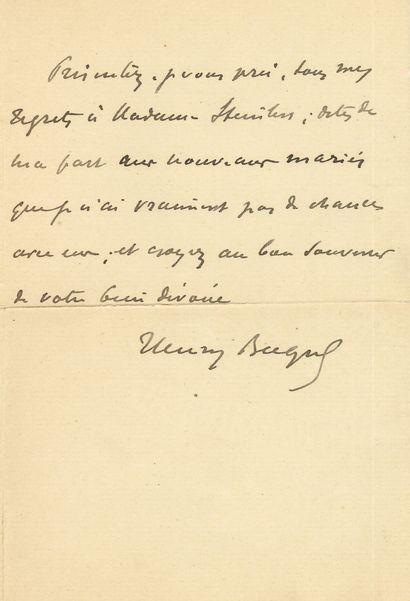 Présentez, je vous prie, tous mes
regrets à Madame ; dites de
ma part aux nouveaux mariés
que je n'ai vraiment pas de chance
avec eux ; et croyez au bon souvenir
de votre bien dévoué
Henry